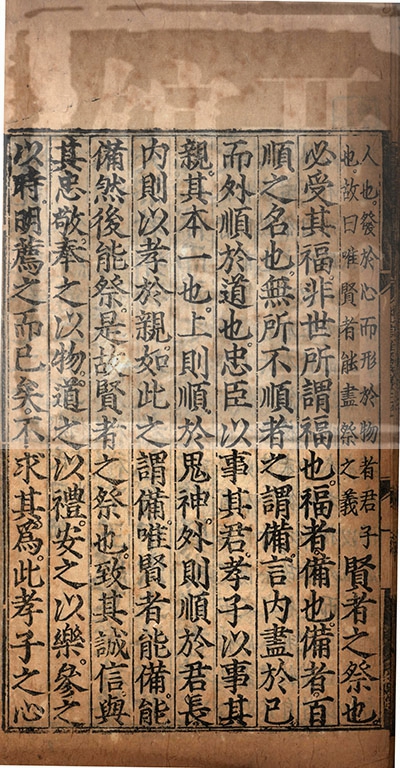 人也。發於心而形於物者君子
也。故曰唯賢者能盡祭之義
賢者之祭也。
必受其福。非世所謂福也。福者。備也。備者。百
順之名也。無所不順者。之謂備。言内盡於己。
而外順於道也。忠臣以事其君。孝子以事其
親。其本一也。上則順於鬼神。外則順於君長。
内則以孝於親。如此之謂備。唯賢者能備。能
備然後能祭。是故賢者之祭也。致其誠信與
其忠敬。奉之以物。道之以禮。安之以樂。參之
以時。明薦之而已矣。不求其爲。此孝子之心